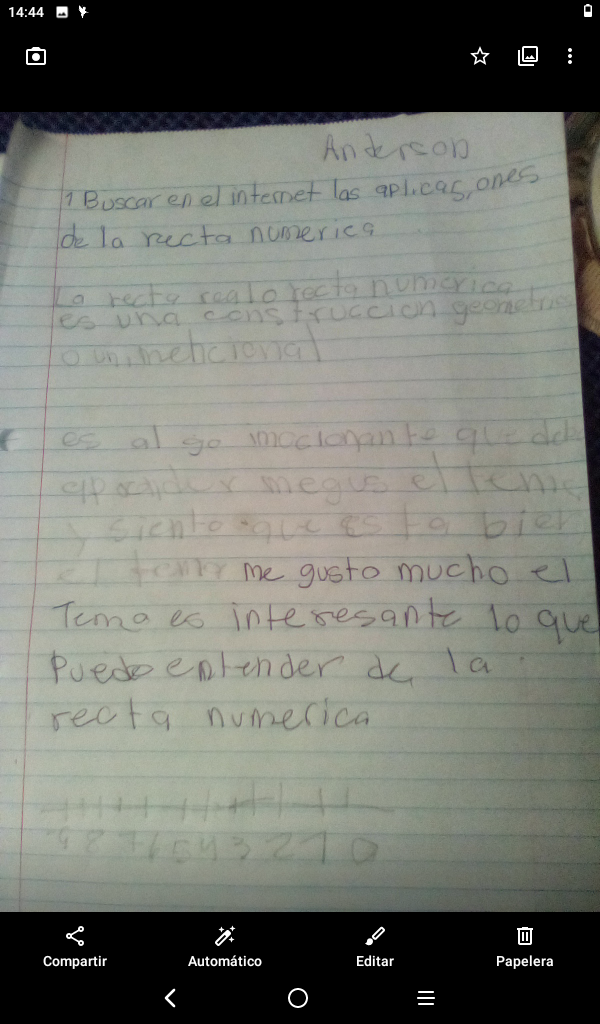 14:44
Anderson
1 Buscar en el internet las aplicasiones
de la recta numerica
La recta real o recta numerica
es una construccion geometric
o un
es al go imocionante que deb
me gus el tema
y siento que es ta bien
el tema me gusto mucho el
Tema es interesante lo que
Puedo entender de la
recta numerica
-9 8 7 6 5 4 3 2 1 0
Compartir
Automático
Editar
Papelera